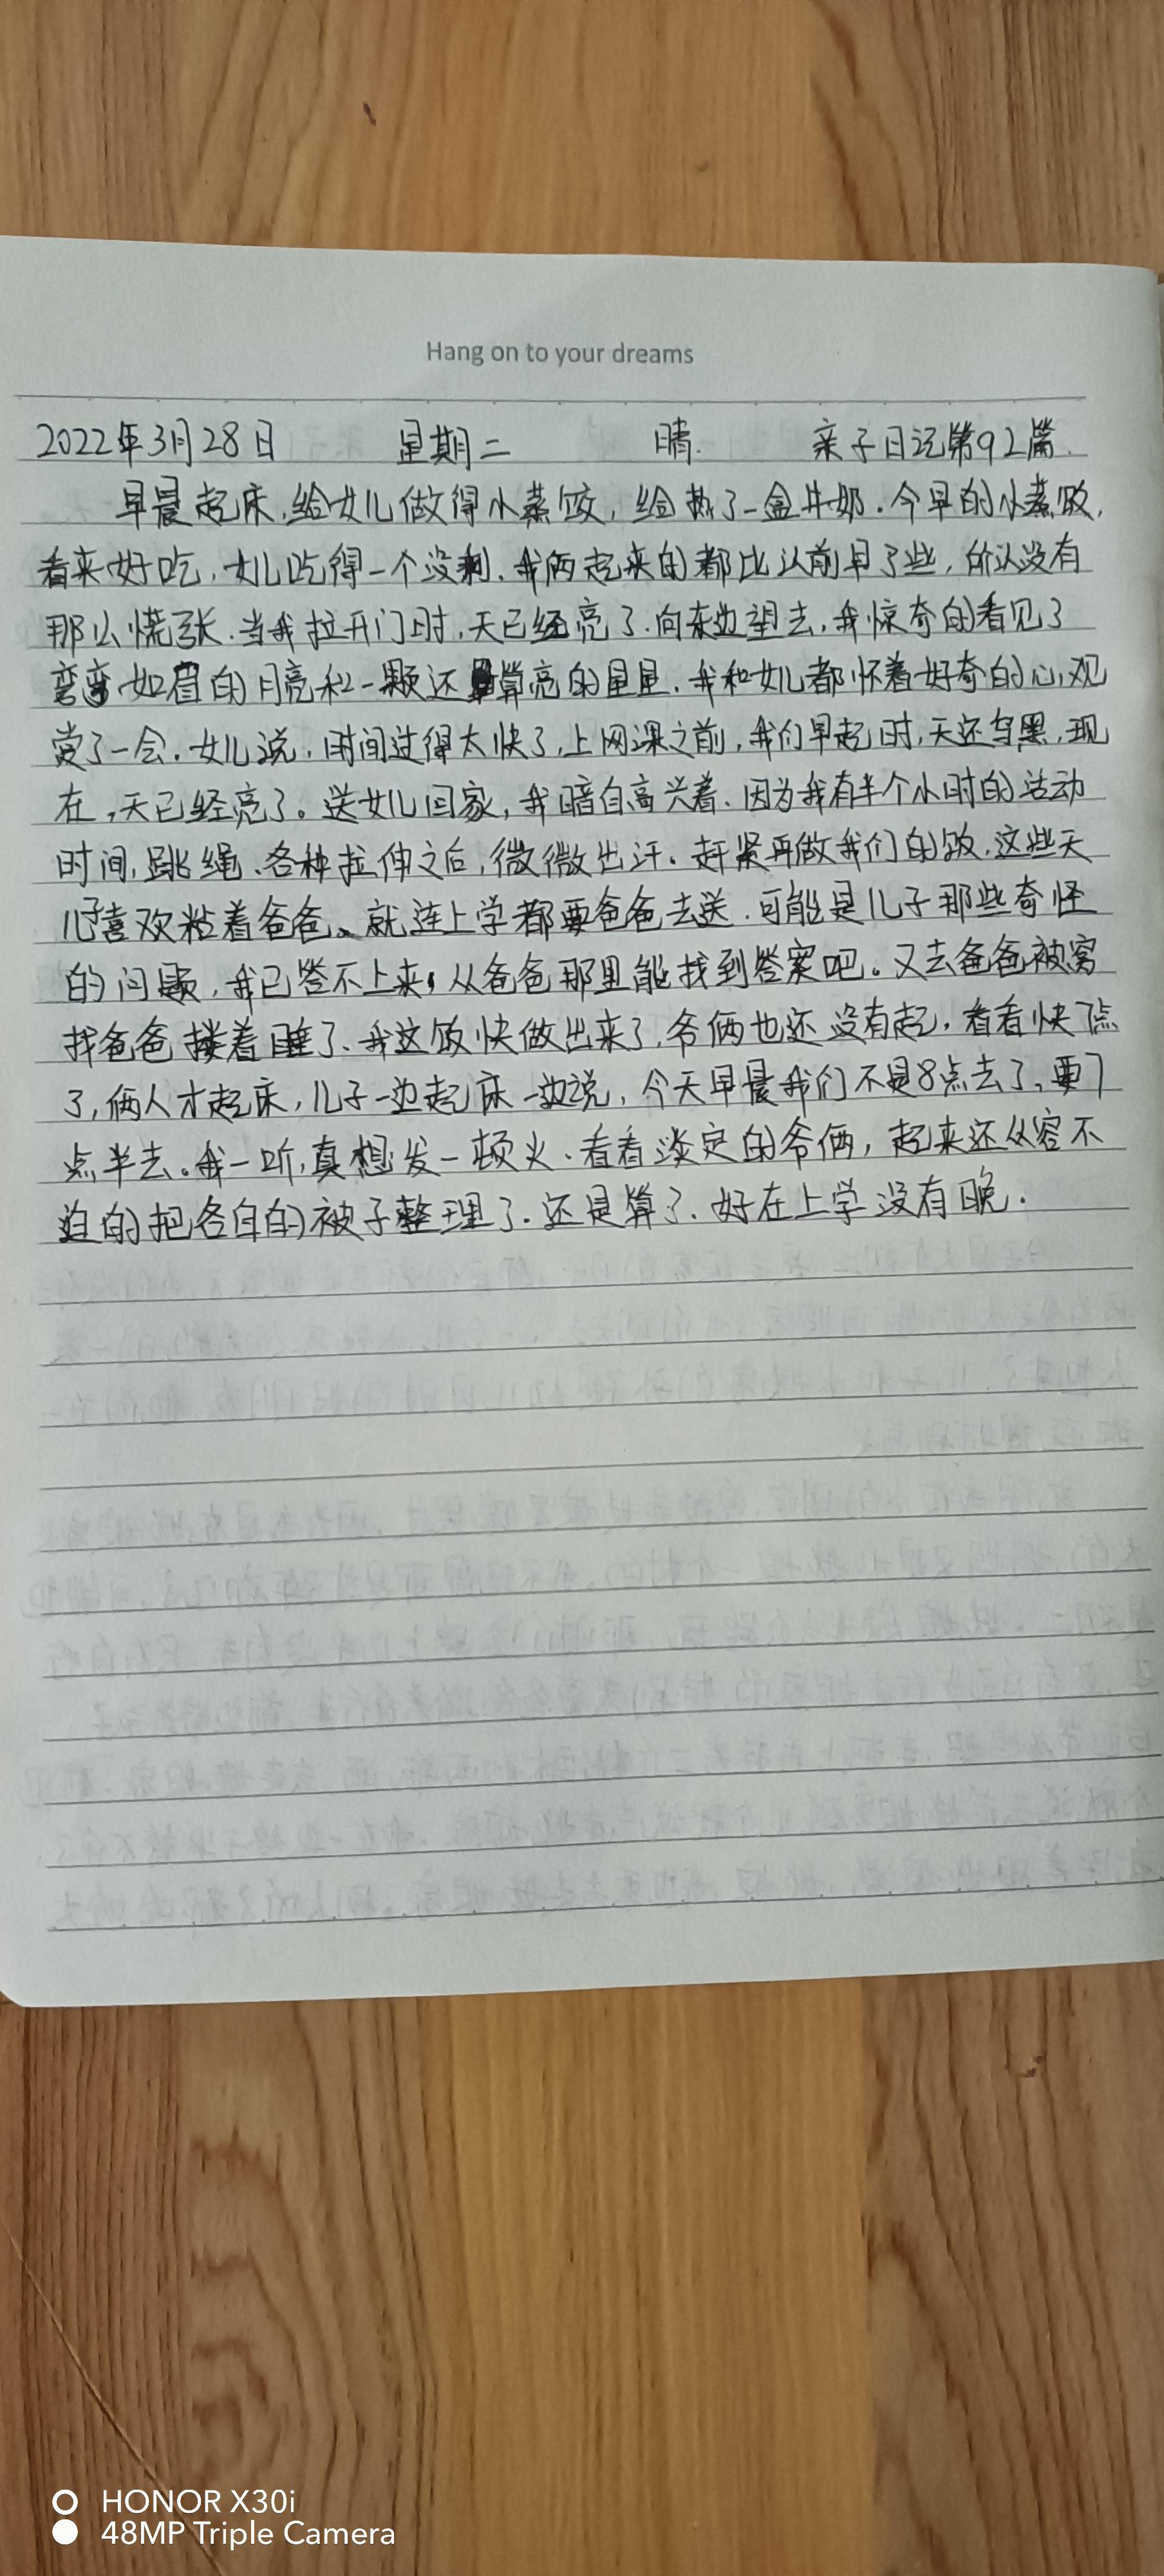 Hang on to your dreams
2022年3月28日 星期二 晴. 亲子日记第92篇.
早晨起床,给女儿做得小蒸饺,给热了一盒牛奶.今早的小蒸饺,
看来好吃,女儿吃得一个没剩.我俩起来的都比以前早了些,所以没有
那么慌张.当我拉开门时,天已经亮了.向东边望去,我惊奇的看见了
弯弯如眉的月亮和一颗还算亮的星星.我和女儿都怀着好奇的心,观
赏了一会.女儿说,时间过得太快了,上网课之前,我们早起时,天还乌黑,现
在,天已经亮了。送女儿回家,我暗自高兴着、因为我有半个小时的活动
时间,跳绳、各种拉伸之后,微微出汗。赶紧再做我们的饭.这些天
儿子喜欢粘着爸爸、就连上学都要爸爸去送.可能是儿子那些奇怪
的问题,我已答不上来,从爸爸那里能找到答案吧。又去爸爸被窝
找爸爸搂着睡了、我这饭快做出来了,爷俩也还没有起,看看快7点
了,俩人才起床,儿子一边起床一边说,今天早晨我们不是8点去了,要7
点半去。我一听,真想发一顿火、看看淡定的爷俩,起来还从容不
迫的把各自的被子整理了.还是算了、好在上学没有晚.
HONOR X30i
48MP Triple Camera